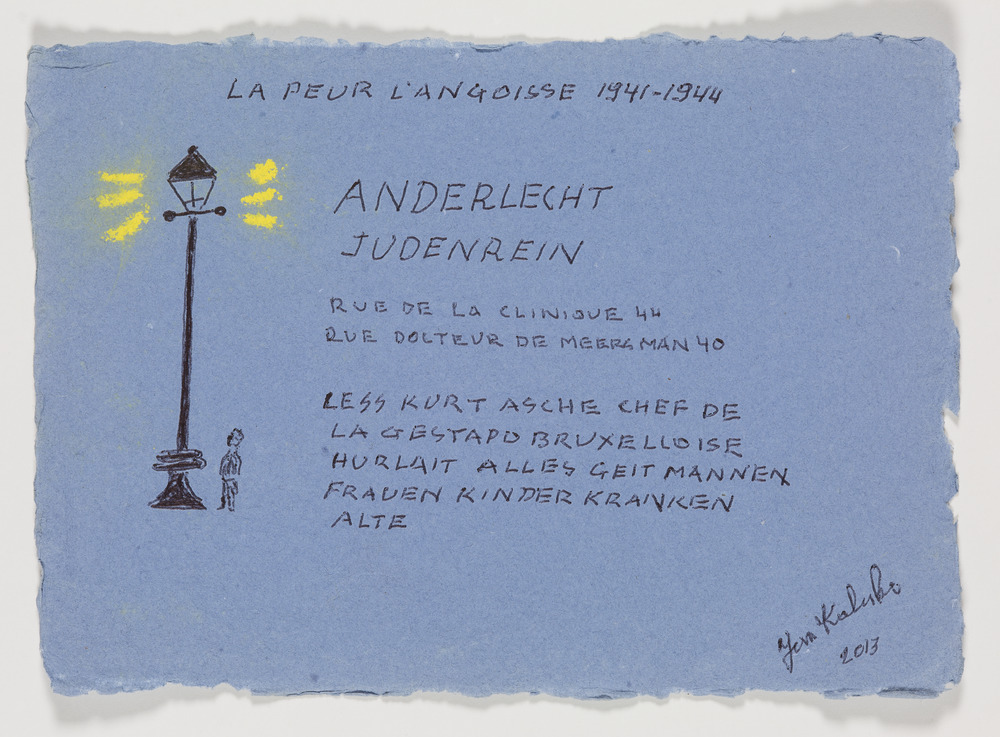 LA PEUR L'ANGOISSE 1941-1944
ANDERLECHT
JUDENREIN
RUE DE LA CLINIQUE 44
RUE DOCTEUR DE MEERSMAN 40
LESS KURT ASCHE CHEF DE
LA GESTAPO BRUXELLOISE
HURLAIT ALLES GEIT MANNEN
FRAUEN KINDER KRANKEN
ALTE
2013